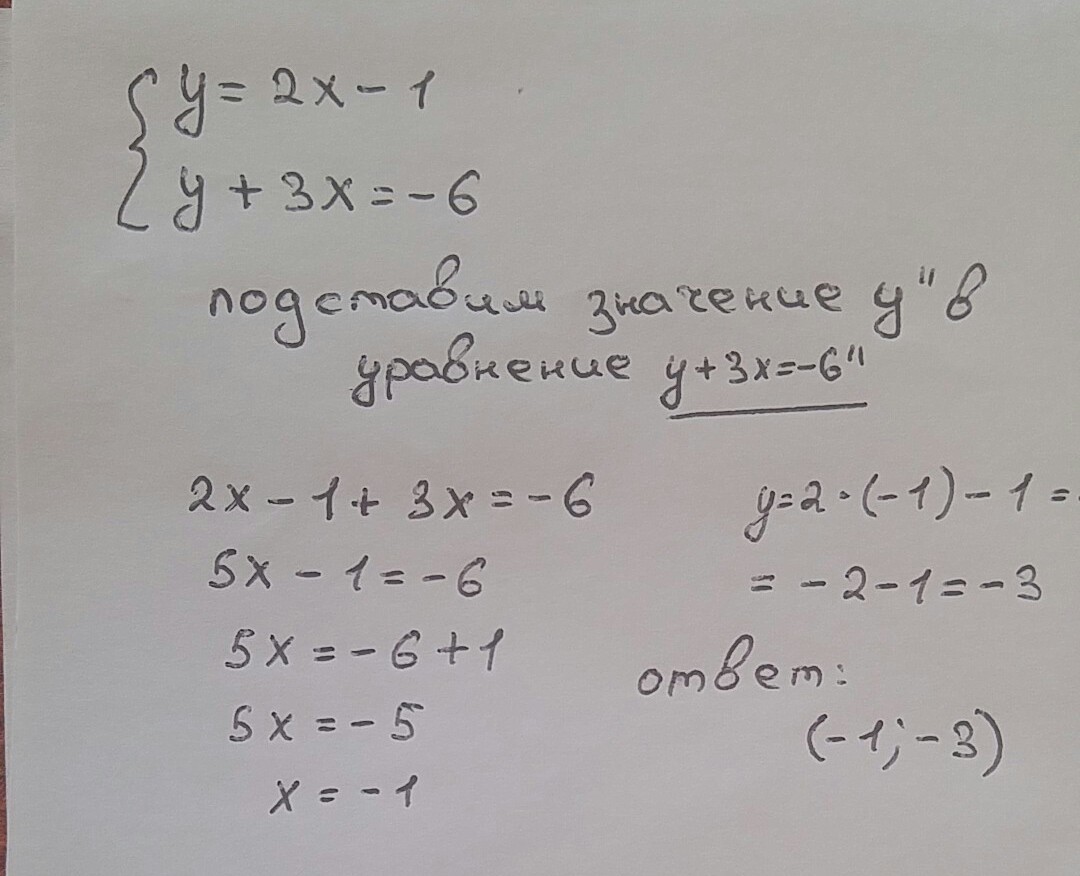 y = 2x - 1
y + 3x = -6
подставим значение y" в
уравнение y+3x=-6"
2x - 1 + 3x = -6
5x - 1 = -6
5x = -6 + 1
5x = -5
x = -1
y = 2 · (-1) - 1 =
= -2 - 1 = -3
ответ:
(-1; -3)